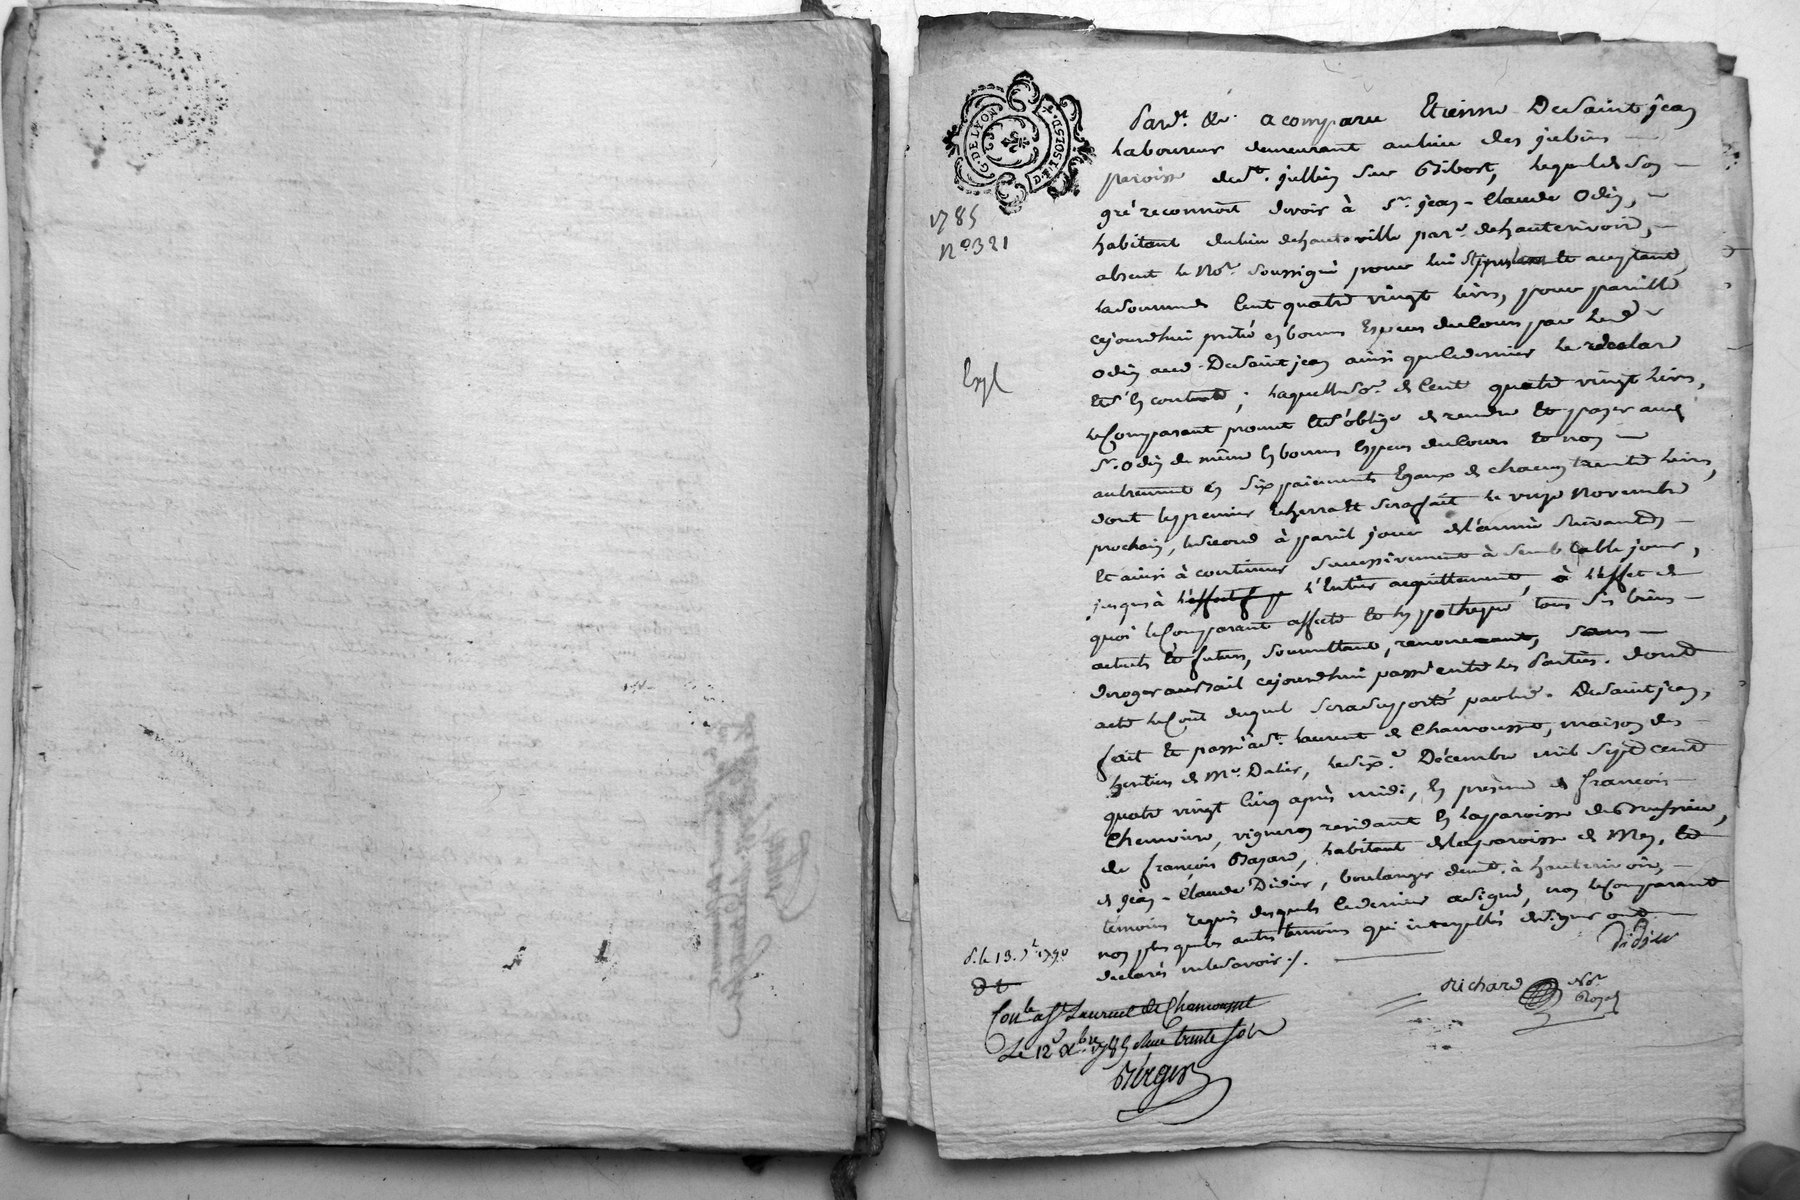 G. DE LYON
D. 1 F. 10 S. 7 D.
1785
N.o 321
Pard.t &c. a comparu Etienne Desaintjean
Laboureur demeurant au lieu des jubins
paroisse de St. jullien sur Bibost, lequel de son
gré reconnoit devoir à Sr. jean-Claude Odin,
habitant du lieu de hauteville par.e de hauterivoire,
absent le No.re soussigné pour lui stipulant et aceptant,
la somme de Cent quatre vingt livres, pour pareille
cejourdhui prêté en bonnes Especes du Cours par led.
Odin aud. Desaintjean ainsi que ce dernier le declare
Expl
Et s'en contente ; laquelle so.e de Cent quatre vingt livres,
le Comparant promet Et s'oblige de rendre Et payer aud.
Sr. Odin de même en bonnes Especes du Cours Et non
autrement en six paiements Egaux de chacun trente livres,
dont le premier Echerra Et sera fait le onze Novembre
prochain, le second à pareil jour de l'année suivante
Et ainsi à continuer successivement à semblable jour,
jusqu'à l'Entier acquittement, à l'effet de
quoi le Comparant affecte Et hypotheque tous ses biens
actuels Et futurs, soumettant, renoncant, sans
deroger au bail cejourdhui passé entre les Parties. dont
acte le Coût duquel sera supporté par led. Desaintjean,
fait Et passé à St. Laurent de Chamousset, maison des
heritiers de Me. Dalier, le six.e Décembre mil sept cent
quatre vingt Cinq après midi, En présence de françois
Cheuviere, vigneron residant En la paroisse de Brussieu,
de françois Bazard, habitant de la paroisse de Meys, Et
de jean-Claude Didier, boulanger demt. à hauterivoire,
temoins requis desquels ce dernier a signé, non le Comparant
non plus que les autres temoins qui interpellés de signer ont
declarés ne le savoir ./.
Didier
Richard No.re Royal
d. le 13. 7.e 1790
Con.lé a St Laurent de Chamousset
Le 12e Xbre 1785 Reçu trente sols
Berger